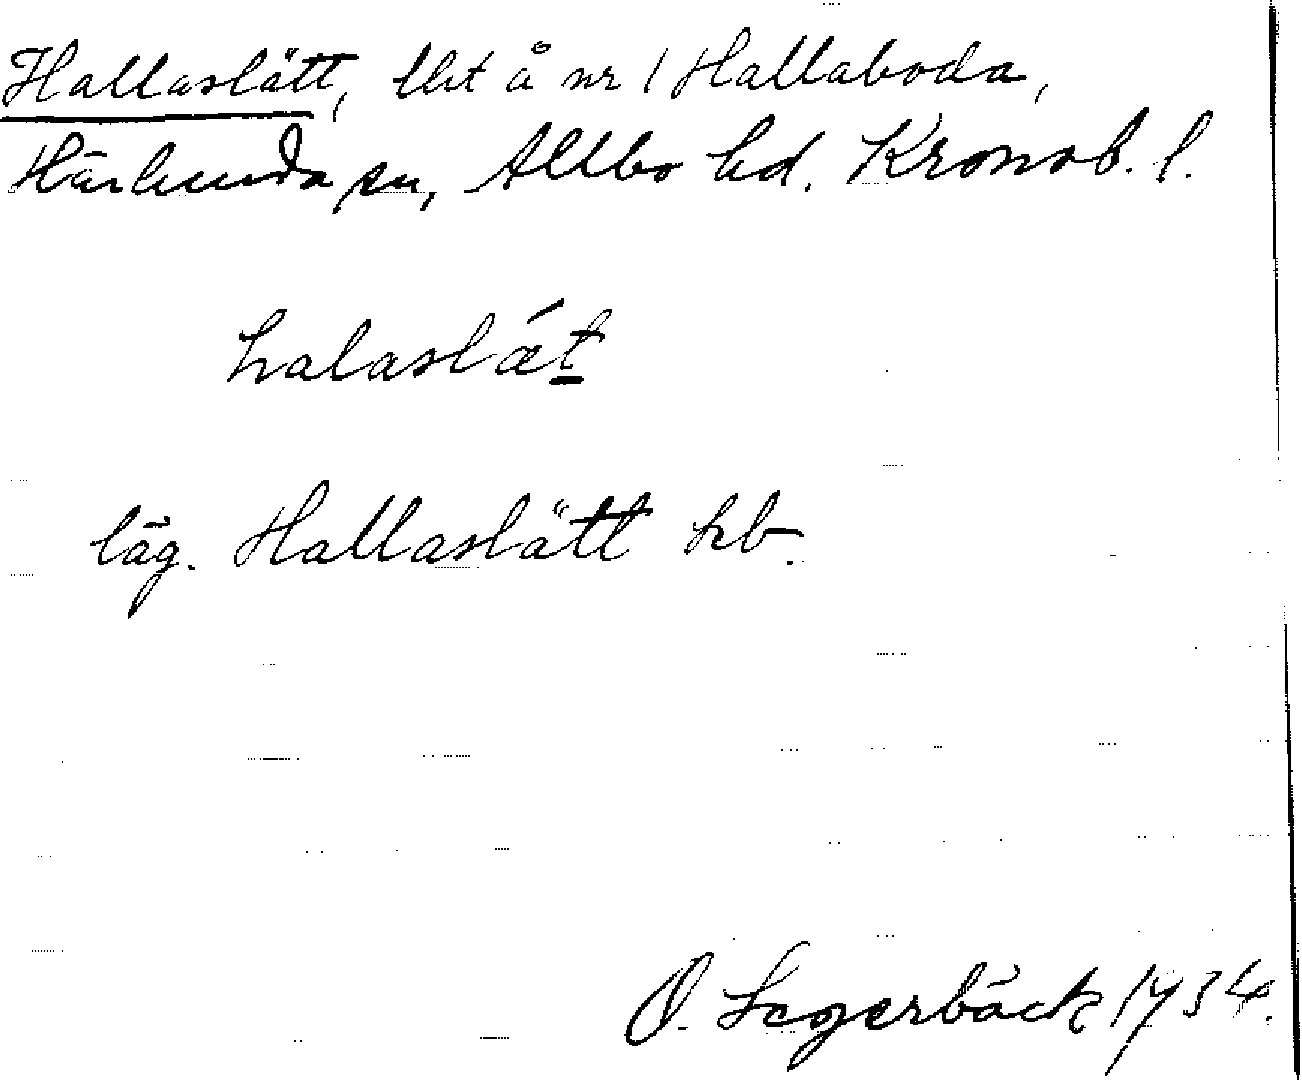 Hallaslätt, lht å nr 1 Hallaboda,
Härlunda sn, Allbo hd. Kronob. l.
halaslǽt
läg. Hallaslätt hb.
O. Segerbäck 1934.